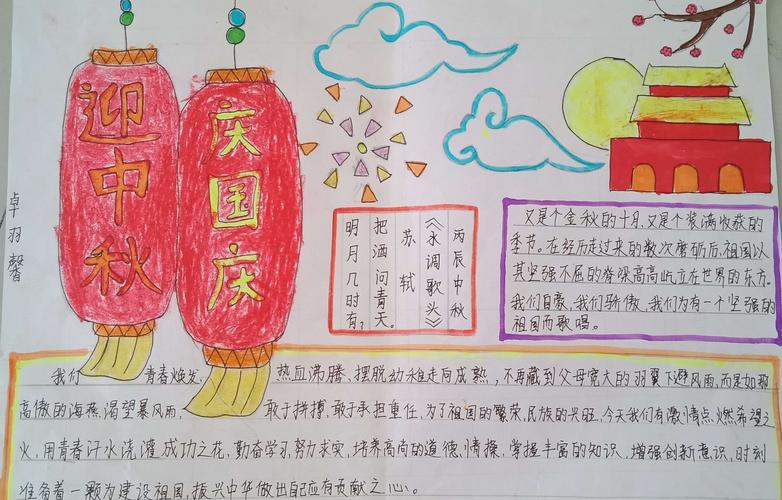 迎中秋
庆国庆
卓羽馨
丙辰中秋
《水调歌头》
苏轼
把酒问青天。
明月几时有?
又是个金秋的十月,又是个装满收获的
季节。在经历走过来的数次磨砺后,祖国以
其坚强不屈的脊深高高屹立在世界的东方。
我们自豪,我们骄傲,我们为有一个坚强的
祖国而歌唱。
我们 青春焕发、 热血沸腾、摆脱幼稚走向成熟,不再藏到父母宽大的羽翼下避风雨,而是如那
高傲的海燕渴望暴风雨. 敢于拼搏.敢于承担重任,为了祖国的繁荣.民族的兴旺,今天我们有激情点燃希望之
火,用青春汗水浇灌成功之花,勤奋学习,努力求实,培养高尚的道德.情操,掌握丰富的知识,增强创新意识,时刻
准备着一颗为建设祖国,振兴中华做出自己应有贡献之心。